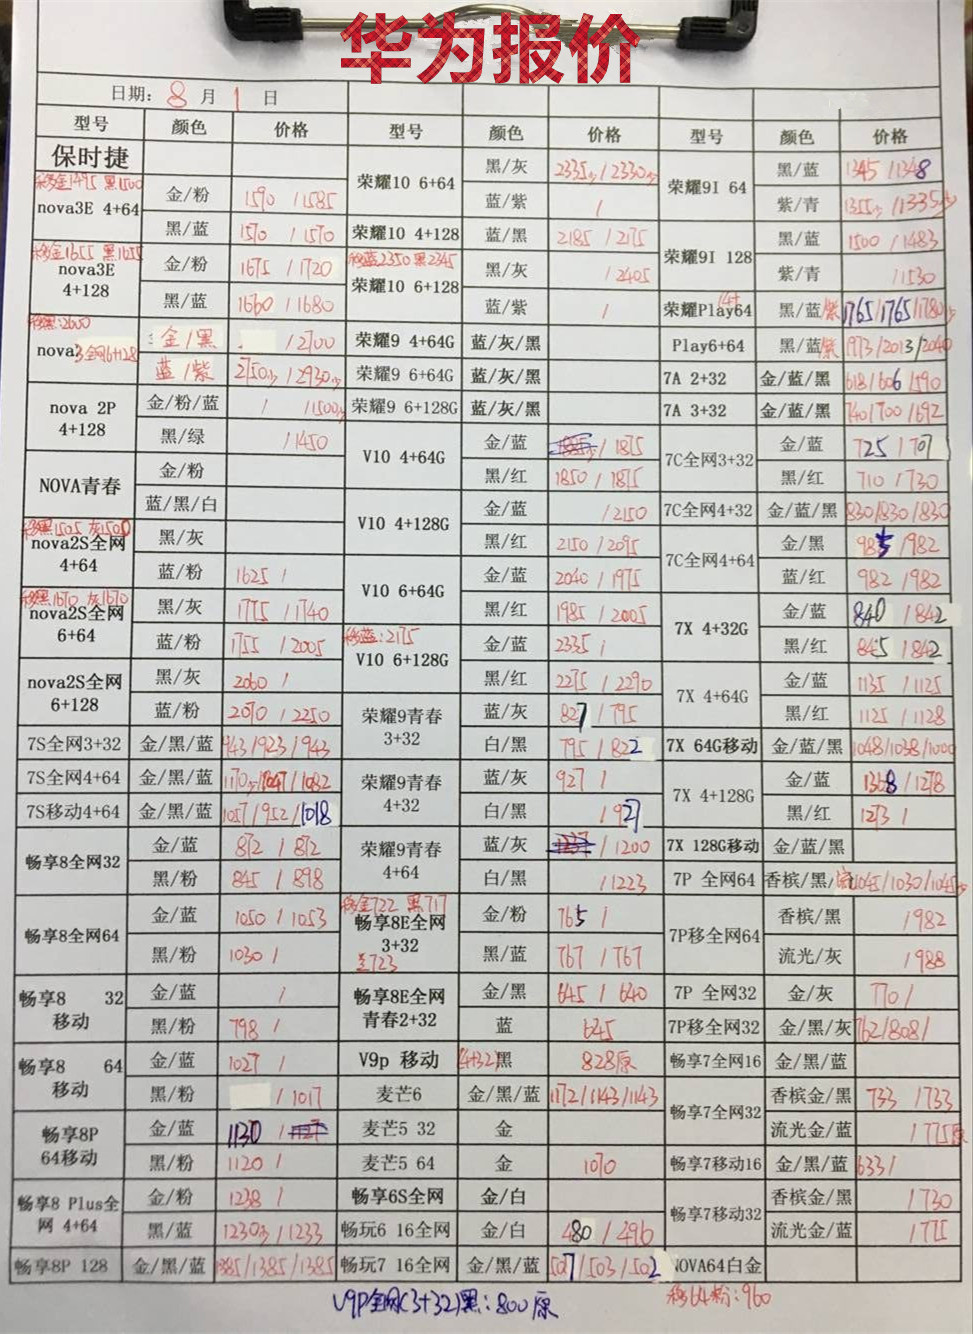 华为报价
日期: 8 月 1 日
型号 颜色 价格 型号 颜色 价格 型号 颜色 价格
保时捷
移金1495 黑1500
nova3E 4+64 金/粉 1590 / 1585
黑/蓝 1570 / 1570
移金1655 黑1655
nova3E 4+128 金/粉 1675 / 1720
黑/蓝 1660 / 1680
移黑:2600
nova3全网6+128 金/黑 / 2700
蓝/紫 2750 / 2930
nova 2P 4+128 金/粉/蓝 / 1500
黑/绿 / 1450
NOVA青春 金/粉
蓝/黑/白
移黑1505 灰1500
nova2S全网 4+64 黑/灰
蓝/粉 1625 /
移黑1670 灰1670
nova2S全网 6+64 黑/灰 1775 / 1740
蓝/粉 1755 / 2005
nova2S全网 6+128 黑/灰 2060 /
蓝/粉 2070 / 2250
7S全网3+32 金/黑/蓝 943/923/943
7S全网4+64 金/黑/蓝 1170/1047/1082
7S移动4+64 金/黑/蓝 1057/952/1018
畅享8全网32 金/蓝 872 / 872
黑/粉 845 / 898
畅享8全网64 金/蓝 1050 / 1053
黑/粉 1030 /
畅享8 32 移动 金/蓝 /
黑/粉 798 /
畅享8 64 移动 金/蓝 1027 /
黑/粉 / 1017
畅享8P 64移动 金/蓝 1130 /
黑/粉 1120 /
畅享8 Plus全网 4+64 金/粉 1238 /
黑/蓝 1230 / 1233
畅享8P 128 金/黑/蓝 1385/1385/1385
荣耀10 6+64 黑/灰 2335 / 2330
蓝/紫 /
荣耀10 4+128 蓝/黑 2185 / 2175
移蓝2350 黑2345
荣耀10 6+128 黑/灰 / 2405
蓝/紫 /
荣耀9 4+64G 蓝/灰/黑
荣耀9 6+64G 蓝/灰/黑
荣耀9 6+128G 蓝/灰/黑
V10 4+64G 金/蓝 / 1875
黑/红 1850 / 1875
V10 4+128G 金/蓝 / 2150
黑/红 2150 / 2095
V10 6+64G 金/蓝 2040 / 1975
黑/红 1985 / 2005
移蓝:2175
V10 6+128G 金/蓝 2335 /
黑/红 2275 / 2290
荣耀9青春 3+32 蓝/灰 827 / 795
白/黑 795 / 822
荣耀9青春 4+32 蓝/灰 927 /
白/黑 / 927
荣耀9青春 4+64 蓝/灰 / 1200
白/黑 / 1223
移金722 黑717
畅享8E全网 3+32 金/粉 765 /
蓝723
黑/蓝 767 / 767
畅享8E全网 青春2+32 金/黑 645 / 640
蓝 625
V9p 移动 (4+32)黑 828原
麦芒6 金/黑/蓝 1172/1143/1143
麦芒5 32 金
麦芒5 64 金 1070
畅享6S全网 金/白
畅玩6 16全网 金/白 480 / 496
畅玩7 16全网 金/黑/蓝 507/503/502
荣耀9I 64 黑/蓝 1345 / 1348
紫/青 1355 / 1335
荣耀9I 128 黑/蓝 1500 / 1483
紫/青 / 1530
荣耀Play 4+64 黑/蓝/紫 1765/1765/1780
Play6+64 黑/蓝/紫 1973/2013/2040
7A 2+32 金/蓝/黑 618/606/590
7A 3+32 金/蓝/黑 740/700/692
7C全网3+32 金/蓝 725 / 707
黑/红 710 / 730
7C全网4+32 金/蓝/黑 830/830/830
7C全网4+64 金/黑 985 / 982
蓝/红 982 / 982
7X 4+32G 金/蓝 840 / 842
黑/红 845 / 842
7X 4+64G 金/蓝 1135 / 1125
黑/红 1125 / 1128
7X 64G移动 金/蓝/黑 1048/1038/1000
7X 4+128G 金/蓝 1308 / 1278
黑/红 1273 /
7X 128G移动 金/蓝/黑
7P 全网64 香槟/黑/流 1045/1030/1045
7P移全网64 香槟/黑 / 1982
流光/灰 / 1988
7P 全网32 金/灰 770 /
7P移全网32 金/黑/灰 762/808/
畅享7全网16 金/黑/蓝
畅享7全网32 香槟金/黑 733 / 733
流光金/蓝 / 775原
畅享7移动16 金/黑/蓝 633 /
畅享7移动32 香槟金/黑 / 730
流光金/蓝 / 775
NOVA64白金
V9P全网(3+32)黑:800原
移64粉:960